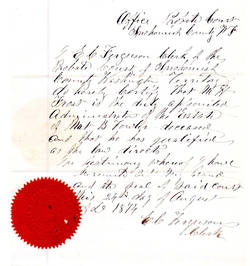 Office Probate Court
Snohomish County W.T.
I E. C. Ferguson Clerk of the
Probate Court of Snohomish
County Washington Territory
do hereby Certify that W. H.
is the duly appointed
Administrator of the Estate
of B. Fowler deceased
and that he has qualified
as the law directs
In testimony whereof I have
hereunto set my hand
and the seal of said Court
this 24th day of August
A.D. 1874
E. C. Ferguson
Clerk